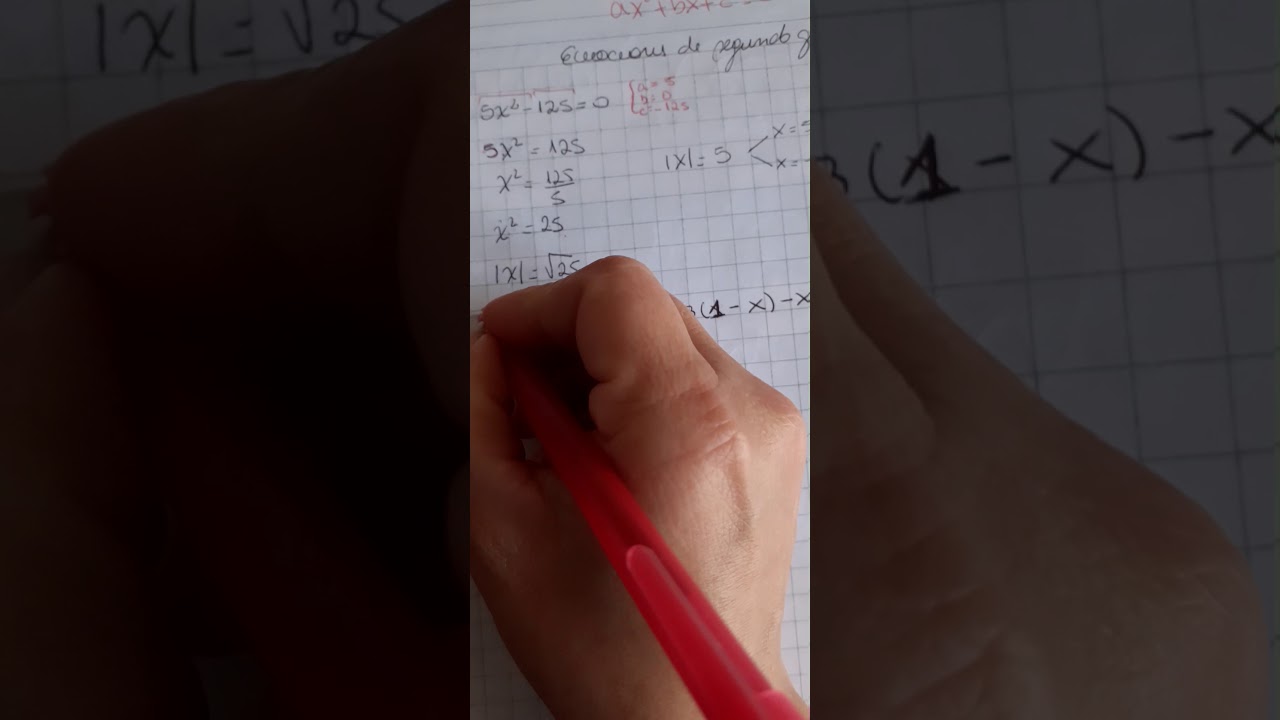 ax²+bx+c
Ecuaciones de segundo g
5x²-125=0
a=5
b=0
c=-125
5x²=125
x²=125/5
x²=25
|x|=√25
|x|=5
x=5
x=-
3(1-x)-x